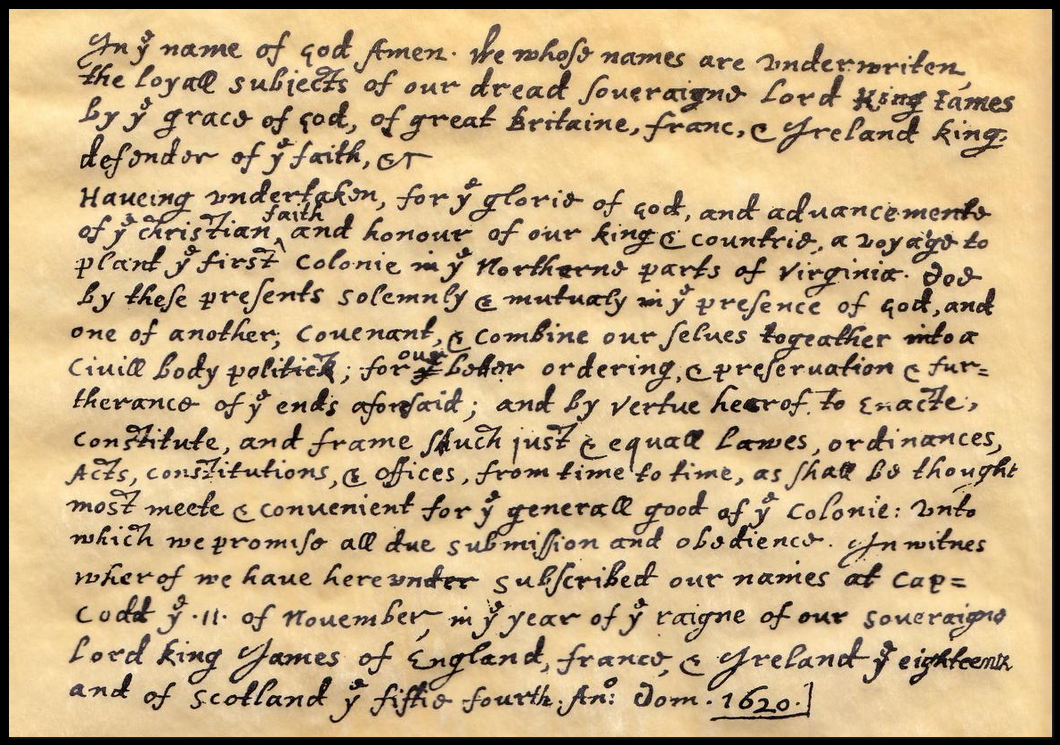 In yͤ name of god Amen. We whose names are vnderwriten,
the loyall subjects of our dread soueraigne Lord King Iames
by yͤ grace of god, of great Britaine, franc, & Ireland king,
defender of yͤ faith, &c
Haueing vndertaken, for yͤ glorie of god, and aduancemente
of yͤ christian ^faith and honour of our king & countrie, a voyage to
plant yͤ first colonie in yͤ Northerne parts of Virginia. Doe
by these presents solemnly & mutualy in yͤ presence of god, and
one of another; covenant, & combine our selves togeather into a
Civill body politick; for our better ordering, & preservation & fur=
therance of yͤ ends aforesaid; and by vertue hearof to Enacte,
constitute, and frame shuch just & equall Lawes, ordinances,
Acts, constitutions, & offices, from time to time, as shall be thought
most meete & convenient for yͤ generall good of yͤ Colonie: vnto
which we promise all due submission and obedience. In witnes
wherof we have herevnder subscribed our names at Cap=
Codd yͤ .11. of November, in yͤ year of yͤ raigne of our soueraigne
Lord king James of England, france, & Ireland yͤ eighteenth
and of Scotland yͤ fiftie fourth. Anº: Dom. 1620.]